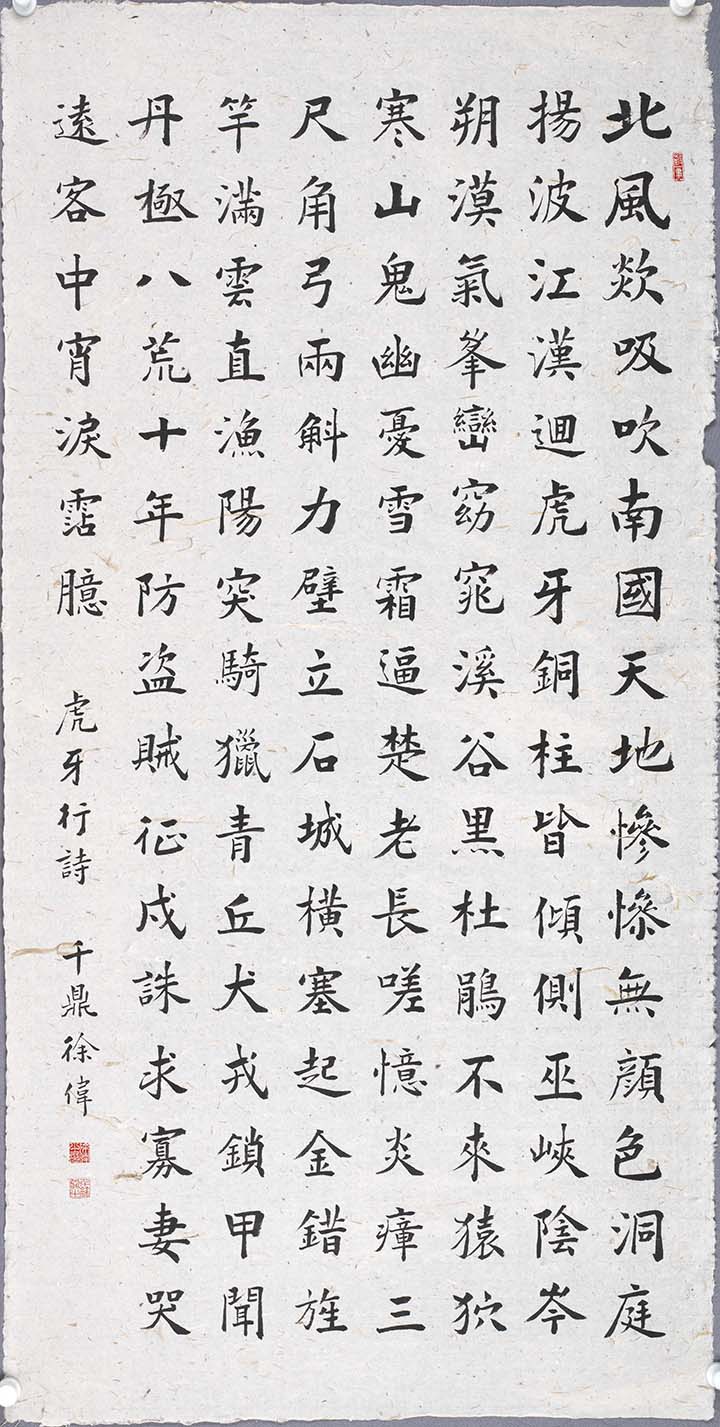 北風欻吸吹南國天地慘慘無顏色洞庭
揚波江漢迴虎牙銅柱皆傾側巫峽陰岑
朔漠氣峯巒窈窕溪谷黑杜鵑不來猿狖
寒山鬼幽憂雪霜逼楚老長嗟憶炎瘴三
尺角弓兩斛力壁立石城橫塞起金錯旌
竿滿雲直漁陽突騎獵青丘犬戎鎖甲聞
丹極八荒十年防盜賊征戍誅求寡妻哭
遠客中宵淚霑臆
虎牙行詩 千鼎徐偉